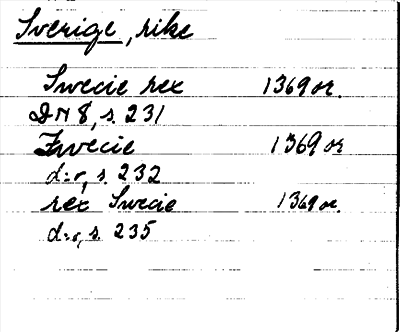 Sverige, rike
Swecie rex 1369 or.
DN 8, s. 231
Zwecie 1369 or
d:o, s. 232
rex Swecie 1369 or.
d:o, s. 235